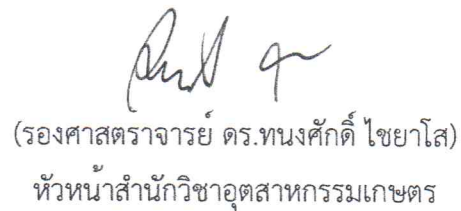 (รองศาสตราจารย์ ดร.ทนงศักดิ์ ไชยาโส)
หัวหน้าสำนักวิชาอุตสาหกรรมเกษตร